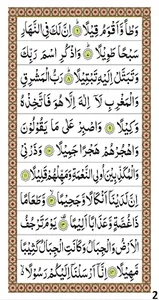 وَطْـًٔا وَّاَقْوَمُ قِيْلًا ۝ اِنَّ لَكَ فِى النَّهَارِ
سَبْحًا طَوِيْلًا ۝ وَاذْكُرِ اسْمَ رَبِّكَ
وَتَبَتَّلْ اِلَيْهِ تَبْتِيْلًا ۝ رَبُّ الْمَشْرِقِ
وَالْمَغْرِبِ لَاۤ اِلٰهَ اِلَّا هُوَ فَاتَّخِذْهُ
وَكِيْلًا ۝ وَاصْبِرْ عَلٰى مَا يَقُوْلُوْنَ
وَاهْجُرْهُمْ هَجْرًا جَمِيْلًا ۝ وَذَرْنِىْ
وَالْمُكَذِّبِيْنَ اُولِى النَّعْمَةِ وَمَهِّلْهُمْ قَلِيْلًا ۝
اِنَّ لَدَيْنَاۤ اَنْكَالًا وَّجَحِيْمًا ۝ وَّطَعَامًا
ذَا غُصَّةٍ وَّعَذَابًا اَلِيْمًا ۝ يَوْمَ تَرْجُفُ
الْاَرْضُ وَالْجِبَالُ وَكَانَتِ الْجِبَالُ كَثِيْبًا
مَّهِيْلًا ۝ اِنَّاۤ اَرْسَلْنَاۤ اِلَيْكُمْ رَسُوْلًا
2